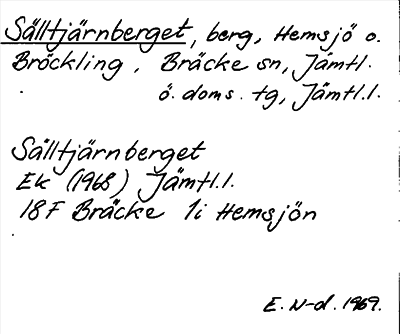 Sälltjärnberget, berg, Hemsjö o.
Bröckling, Bräcke sn, Jämtl.
ö. doms. tg, Jämtl.l.
Sälltjärnberget
Ek (1968) Jämtl.l.
18F Bräcke 1i Hemsjön
E. N-d. 1969.